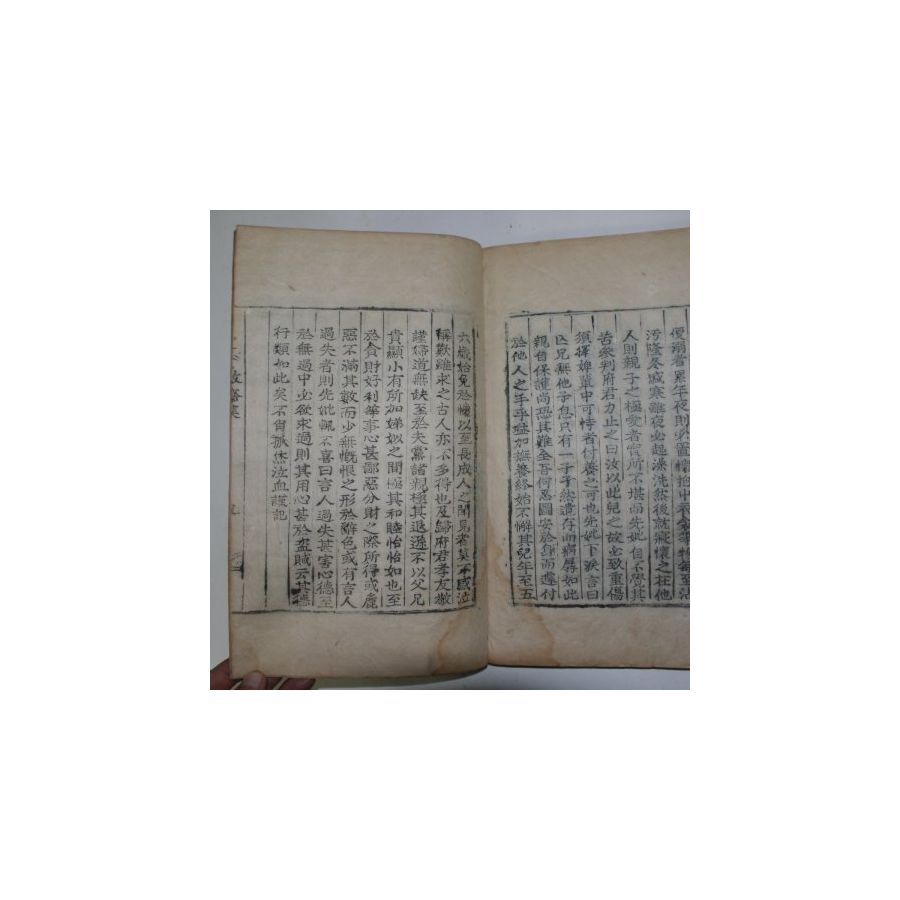 便溺者累年夜則必置懷抱中衣衾等物每至沾
汚隆冬減寒雖夜必起澡洗然後就寢懷之在他
人則親子之極愛者實所不堪而先妣自不覺其
苦參判府君力止之曰汝以此兒之故必致重傷
須擇婢輩中可恃者付養之可也先妣下淚言曰
亡兄無他子息只有一子子然遺存而病孱如此
親自保護尚恐其難全吾何忍圖安於身而遽付
於他人之手乎益加撫養終始不懈其兒年至五
六歲始免於懷以至長成人之聞見者莫不感泣
稱歎雖求之古人亦不多得也及歸府君孝友敬
謹婦道無缺至於夫黨諸親極其退遜不以父兄
貴顯小有所加娣姒之間極其和睦怡怡如也至
於貪財好利等事心甚鄙惡分財之際所得或麁
惡不滿其數而少無慨恨之形於辭色或有言人
過失者則先妣輒不喜曰言人過失甚害心德至
於無過中必欲求過則其用心甚於盜賊云其德
行類如此矣不肖孤 泣血謹記